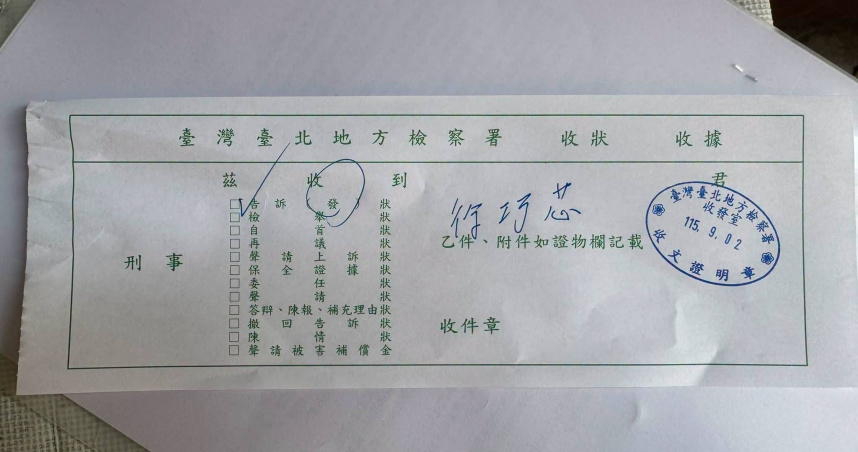 臺灣臺北地方檢察署 收狀 收據
茲 收 到 徐巧芯 君
刑事
□告訴(發)狀
□檢舉狀
□自首狀
□再議狀
□聲請上訴狀
□保全證據狀
□委任狀
□聲請狀
□答辯、陳報、補充理由狀
□撤回告訴狀
□陳情狀
□聲請被害補償金
乙件、附件如證物欄記載
收件章
臺灣臺北地方檢察署
收發室
115.9.02
收文證明章